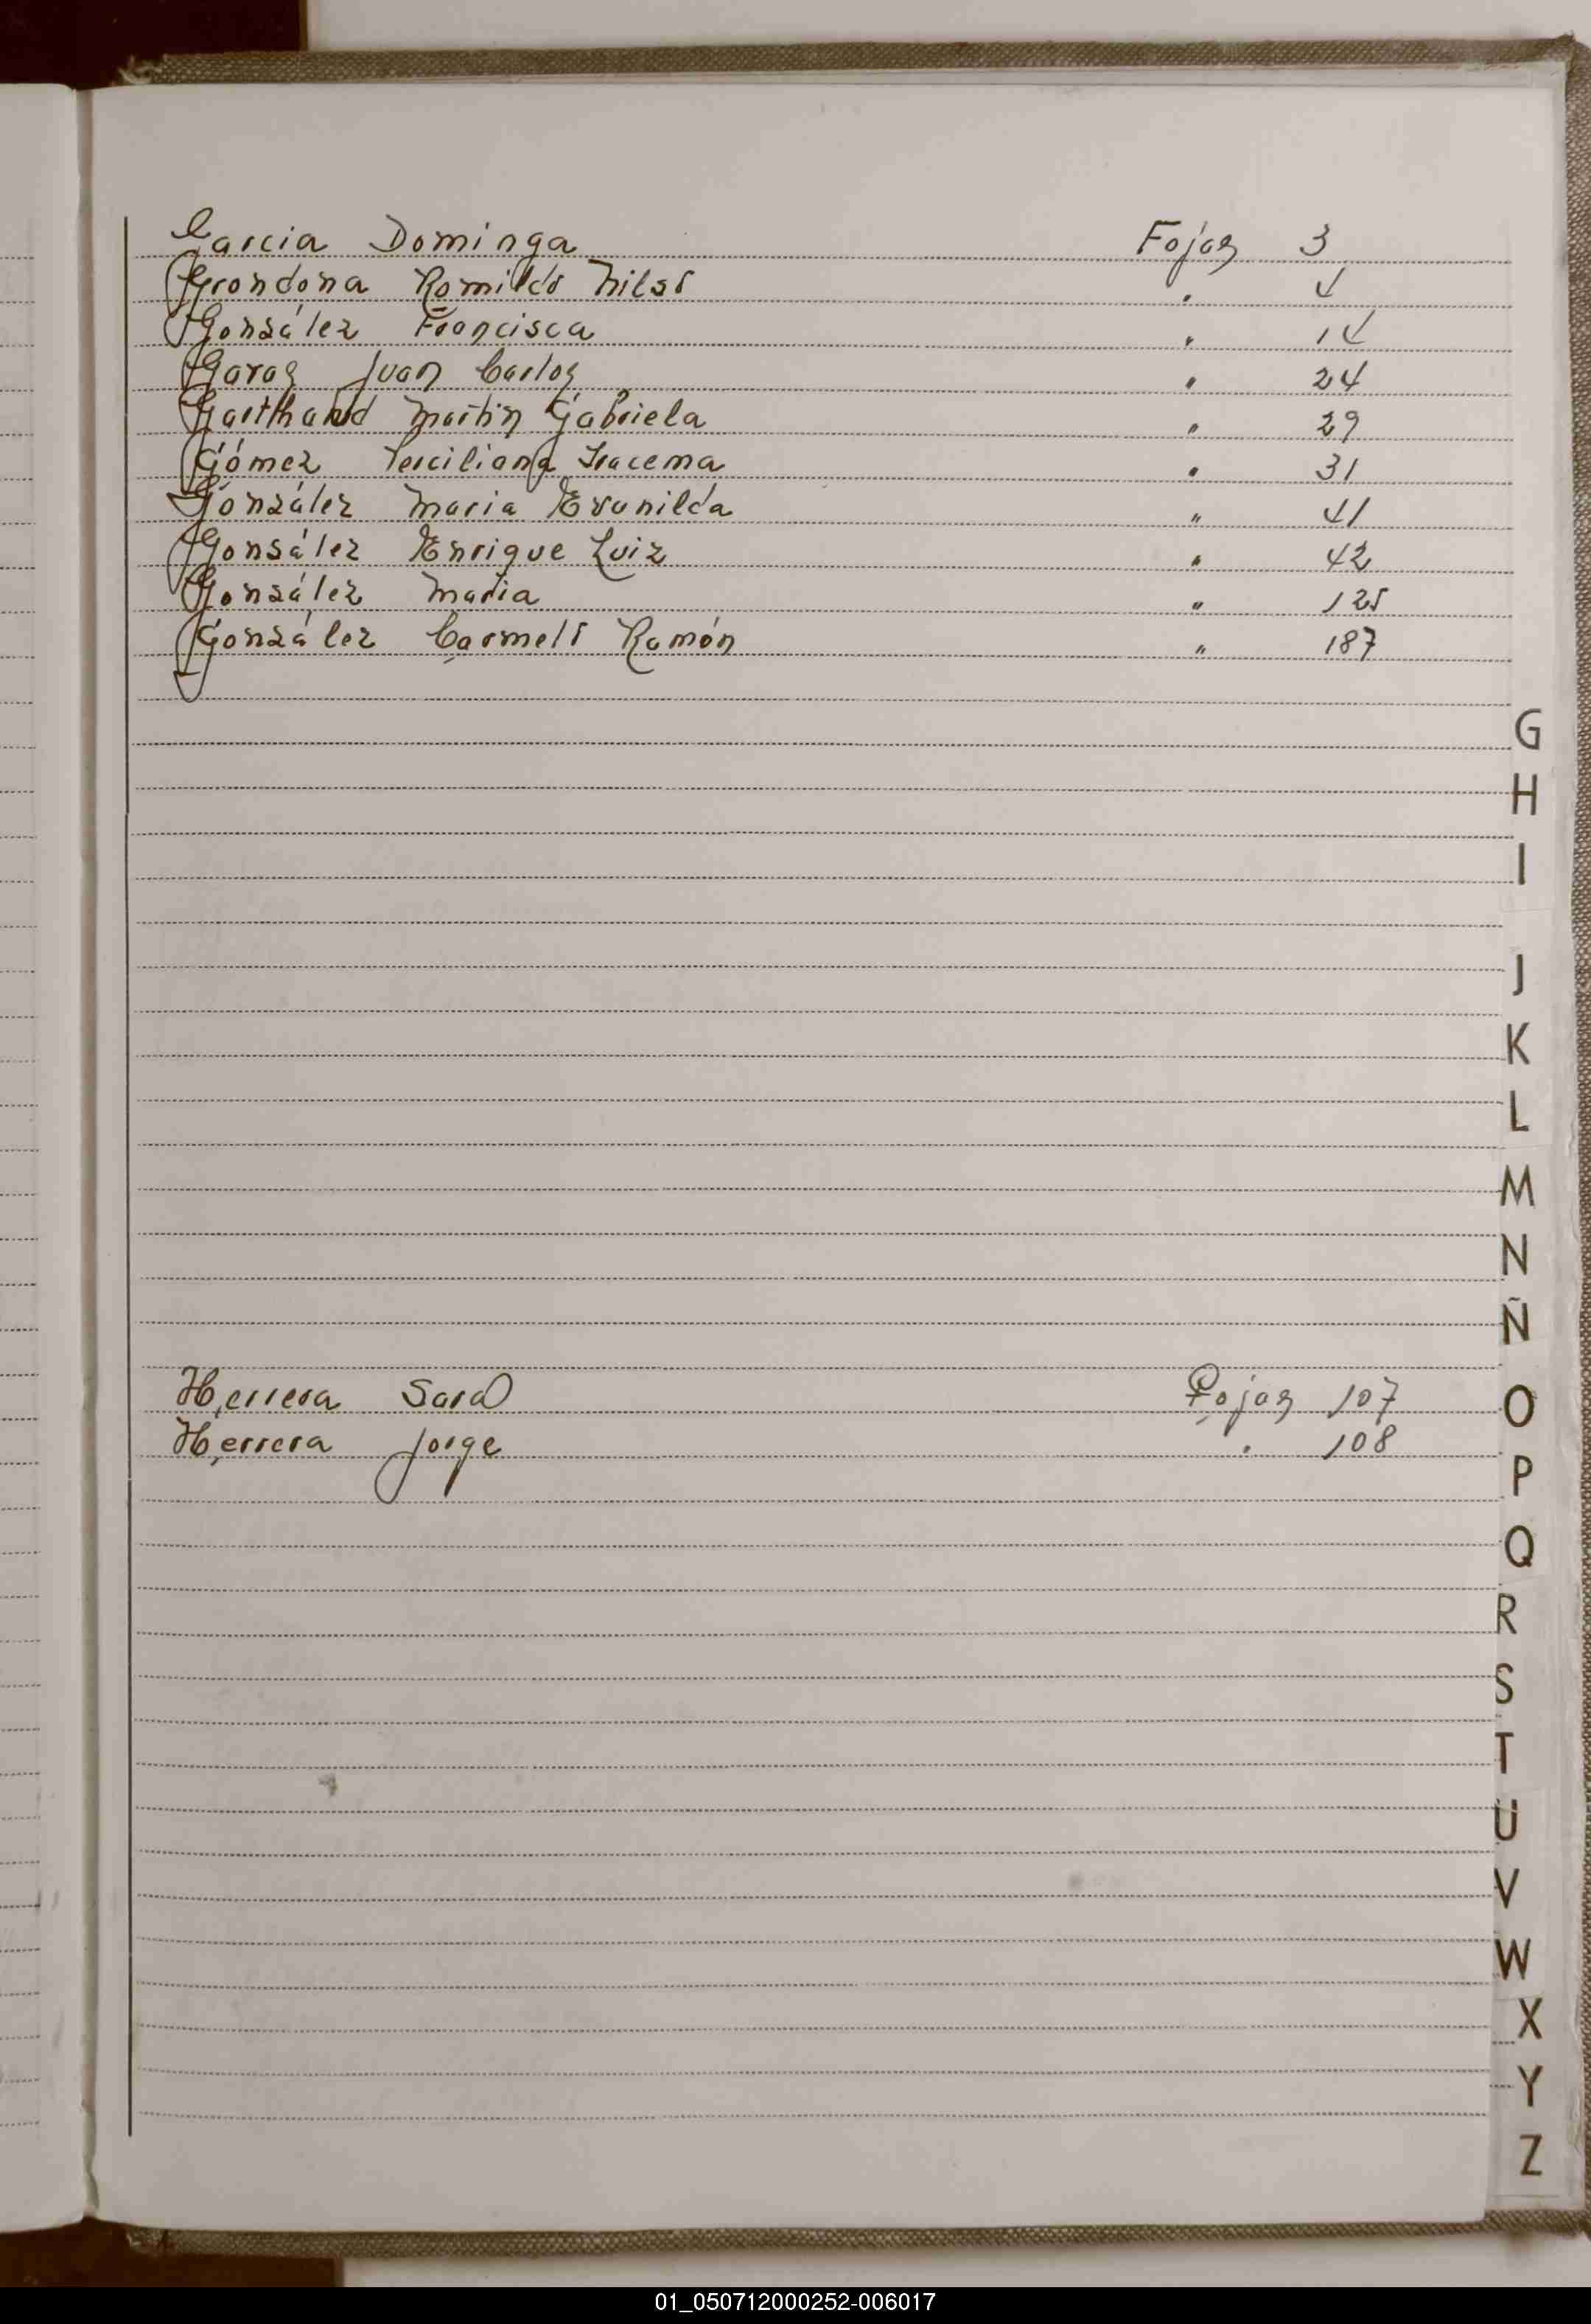 Garcia Dominga Fojas 3
Grondona Romildo Nilso " 4
González Francisca " 14
Garay Juan Carlos " 24
Martin Gabriela " 29
Gómez Terciliana Iracema " 31
González Maria Evanilda " 41
González Enrique Luiz " 42
González Maria " 125
González Carmelo Ramón " 187
G
H
I
J
K
L
M
N
Ñ
Herrera Sara Fojas 107
O
Herrera Jorge " 108
P
Q
R
S
T
U
V
W
X
Y
Z
01_050712000252-006017